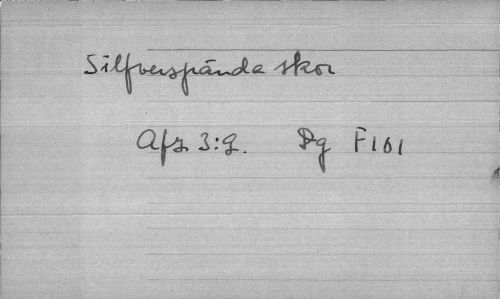 Silfverspända skor
Afz. 3:9. Dg F 101